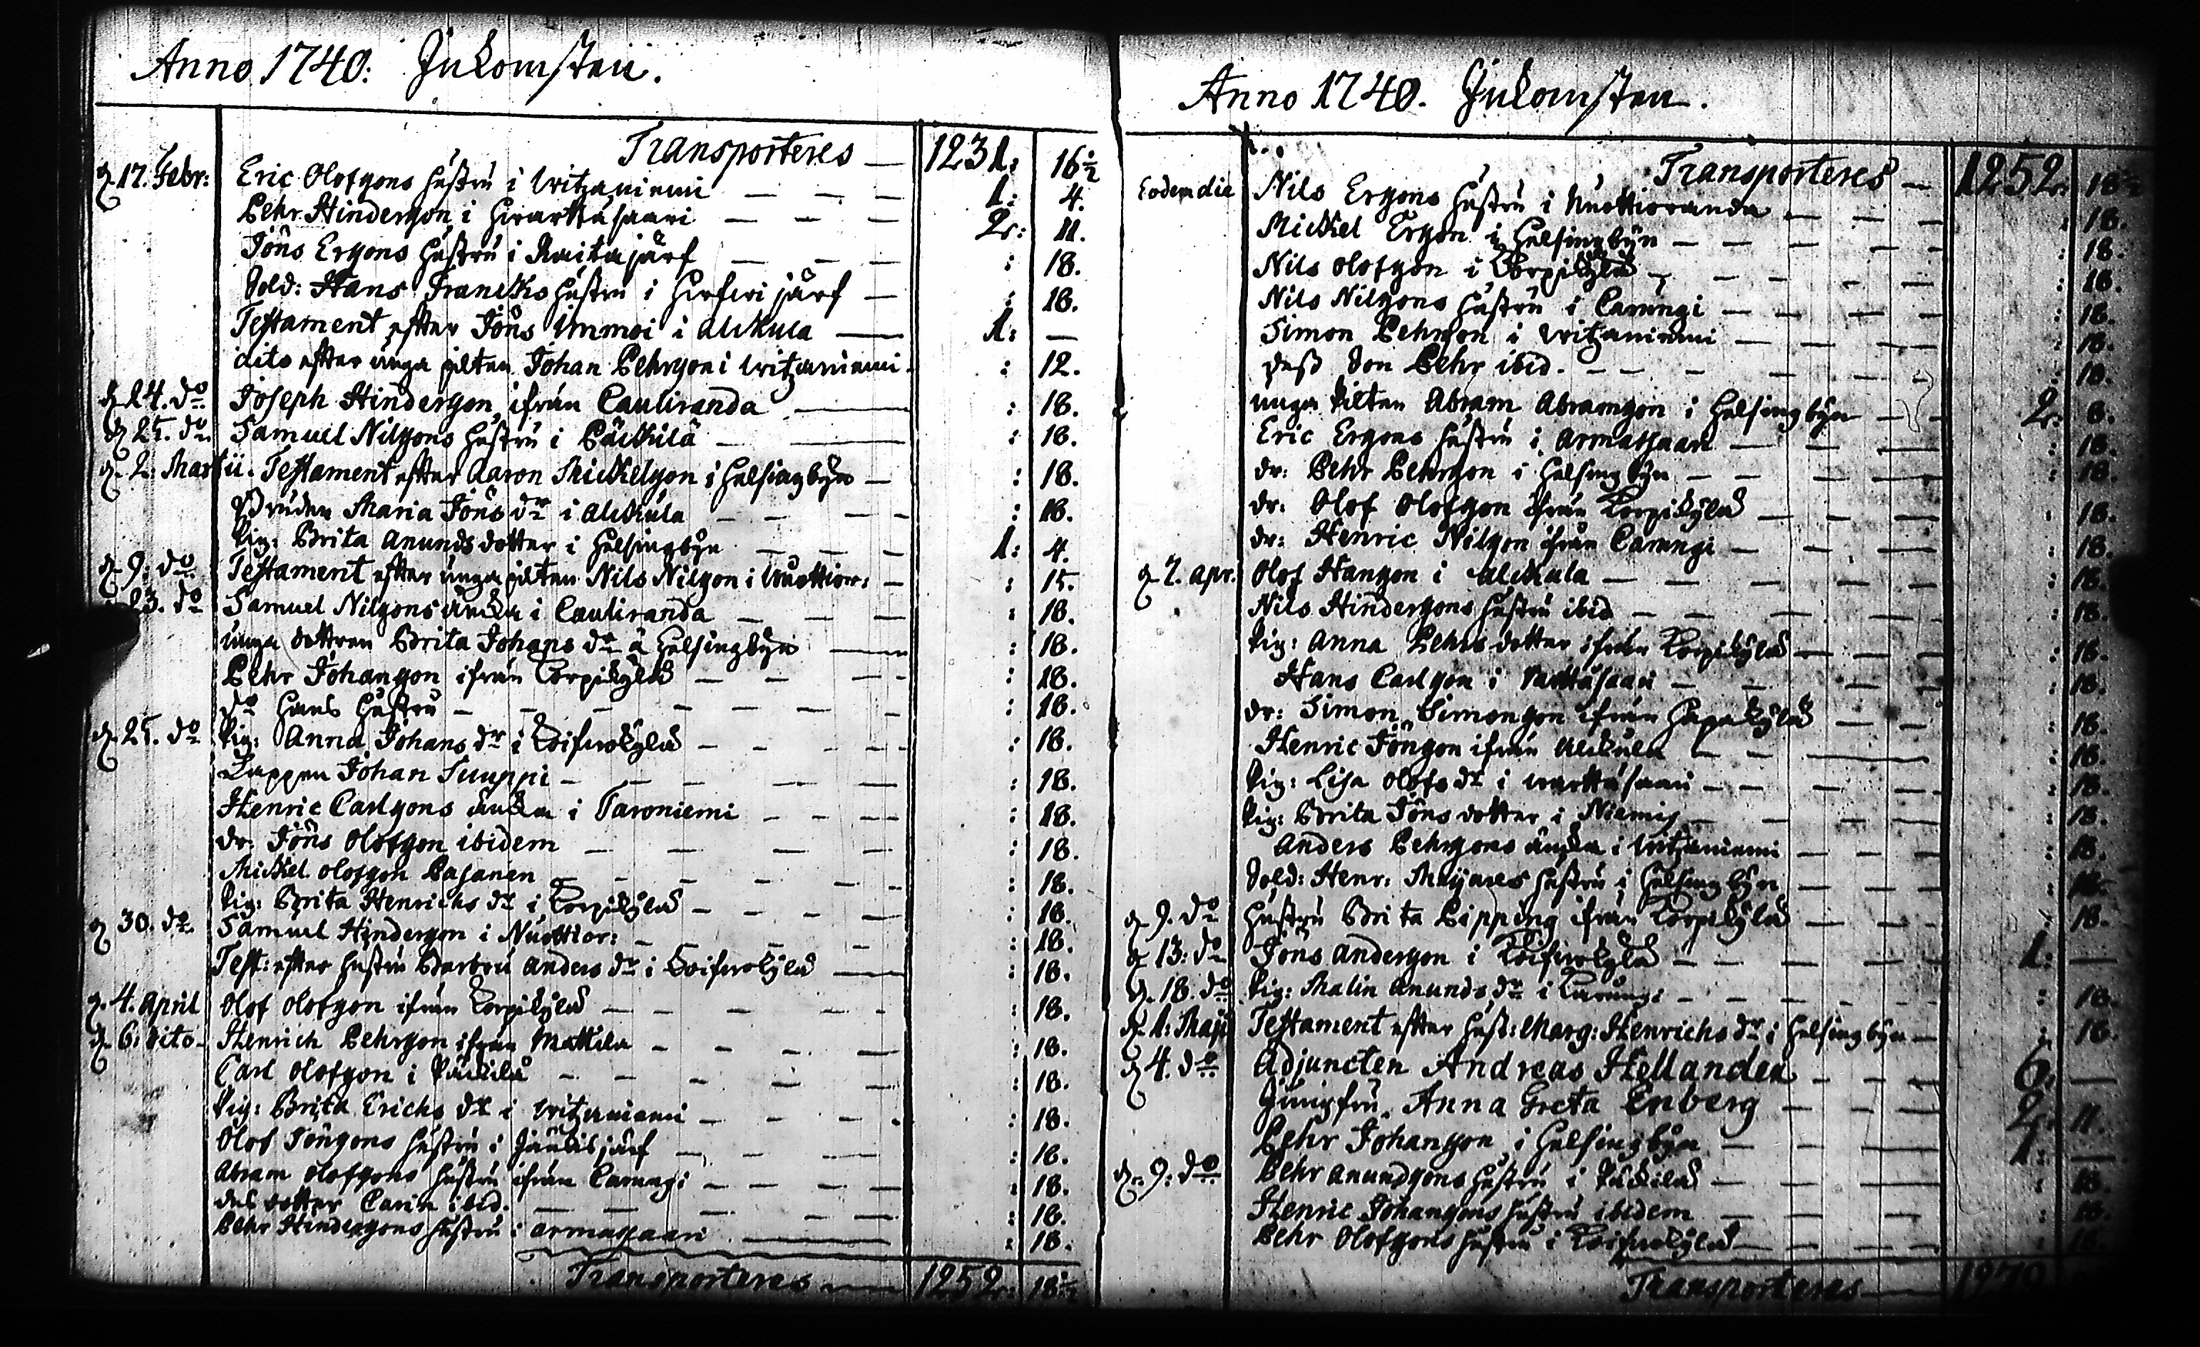 Anno 1740. Inkomsten.
Transporteres — 1231: 16½
d. 17. Febr: Eric Olofzons hustru i Witzaniemi — — — 1: 4.
Pehr Hinderzon i Hwarttasaari — — — 2: 11.
Jöns Erzons hustru i Raitajärf — — — : 18.
Sold: Hans Francks hustru i Hirfwijärf — : 18.
Testament efter Jöns Immoi i Alckula — 1: —
dito efter unga pilten Johan Pehrzon i Witzaniemi. : 12.
d. 24. do Joseph Hinderzon ifrån Cauliranda — : 18.
d. 25. do. Samuel Nilzons hustru i Päckilä — : 18.
d. 2. Martii. Testament efter Aaron Mickelzon i Helsingbyn — : 18.
Pruden Maria Jöns dr i Alckula — — : 18.
Pig: Brita Anunds dotter i Helsingbyn — — 1: 4.
d. 9. do Testament efter unga pilten Nils Nilzon i Nuottior: — : 15.
23. do Samuel Nilzons äncka i Cauliranda — — : 18.
unga dottren Brita Johans dr ä Helsingbyn — : 18.
Pehr Johanzon ifrån Korpikylä — — : 18.
do hans hustru — — — : 18.
d. 25. do Pig: Anna Johans dr i Koifwokylä — : 18.
Lappen Johan Suuppi — — — : 18.
Henric Carlzons äncka i Taroniemi — — : 18.
dr: Jöns Olofzon ibidem — — — : 18.
Mickel Olofzon Pajanen — — — : 18.
Pig: Brita Henrichs dr i Korpikylä — — : 18.
d. 30. do. Samuel Hinderzon i Nuottior: — — : 18.
Test: efter hustru Barbru Anders dr i Koifwokylä — : 18.
d. 4. April Olof Olofzon ifrån Korpikylä — — : 18.
d. 6. dito. Henrich Pehrzon ifrån Mattila — — : 18.
Carl Olofzon i Päckilä — — — : 18.
Pig: Brita Erichs dr i Witzaniemi — — : 18.
Olof Jönzons hustru i Jänkisjärf — — : 18.
Abram Olofzons hustru ifrån Carungi — — : 18.
des dotter Carin ibid. — — — : 18.
Pehr Hinderzons hustru i Armassaari — : 18.
Transporteres — 1252: 18½
Anno 1740. Inkomsten.
Transporteres — 1252: 18½
Eodem die Nils Erzons hustru i Nuottioranda — — : 18.
Mickel Erzon i Helsingbyn — — — : 18.
Nils Olofzon i Korpikylä — — — : 18.
Nils Nilzons hustru i Carungi — — — : 18.
Simon Pehrzon i Witzaniemi — — — : 18.
dess Son Pehr ibid. — — — : 18.
unga Pilten Abram Abramzon i Helsingbyn — 2: 8.
Eric Erzons hustru i Armassaari — — : 18.
dr: Pehr Pehrzon i Helsingbyn — — : 18.
dr: Olof Olofzon ifrån Korpikylä — — : 18.
dr: Henric Nilzon ifrån Carungi — — : 18.
d. 7. apr. Olof Hanzon i Alckula — — — : 18.
Nils Hinderzons hustru ibid — — — : 18.
Pig: Anna Pehrs dotter ifrån Korpikylä — — : 18.
Hans Carlzon i — — — : 18.
dr: Simon Simonzon ifrån Hapakylä — — : 18.
Henric Jönzon ifrån Alckula — — — : 18.
Pig: Lisa Olofs dr i Warttasaari — — : 18.
Pig: Brita Jöns dotter i Niemis — — : 18.
Anders Pehrzons äncka i Witzaniemi — — : 18.
Sold: Henr: hustru i Helsingbyn — : 18.
d. 9. do hustru Brita Pipping ifrån Korpikylä — : 18.
d. 13. do Jöns Anderzon i Koifwokylä — — 1: —
d. 18. do Pig: Malin Anunds dr i Carungi — — : 18.
d. 1. Maji Testament efter hust: Marg: Henrichs dr i Helsingbyn — : 18.
d. 4. do Adjuncten Andreas Hellander — 6: —
Jungfru Anna Greta Enberg — — 2: 11.
Pehr Johanzon i Helsingbyn — — 1: —
d. 9. do Pehr Anundzons hustru i Päckilä — — : 18.
Henric Johanzons hustru ibidem — — : 18.
Pehr Olofzons hustru i Koifwokylä — — : 18.
Transporteres —